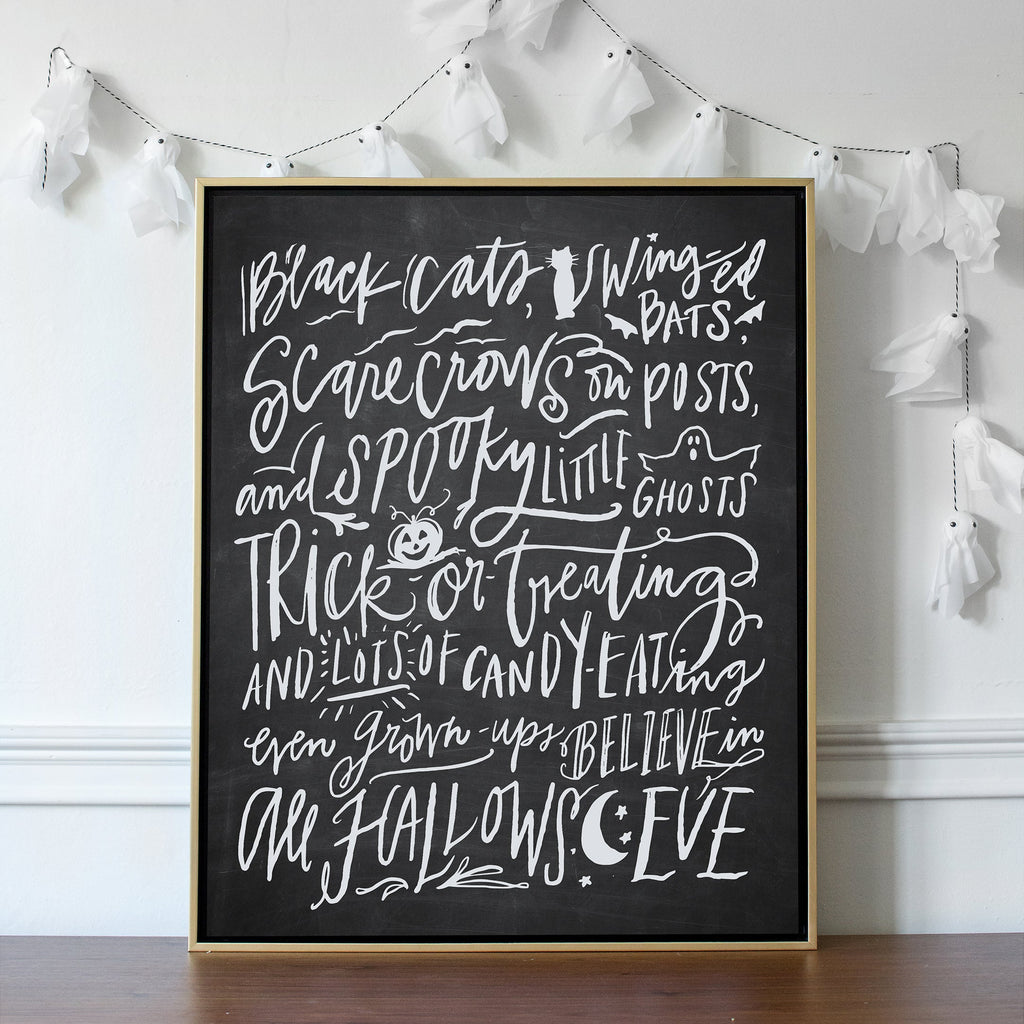 Black Cats, Wing-ed
BATS,
Scarecrows on POSTS,
and SPOOKY LITTLE
GHOSTS
TRICK-or-treating
AND LOTS OF CANDY-EATing
even grown-ups BELIEVE in
All HALLOWS' EVE